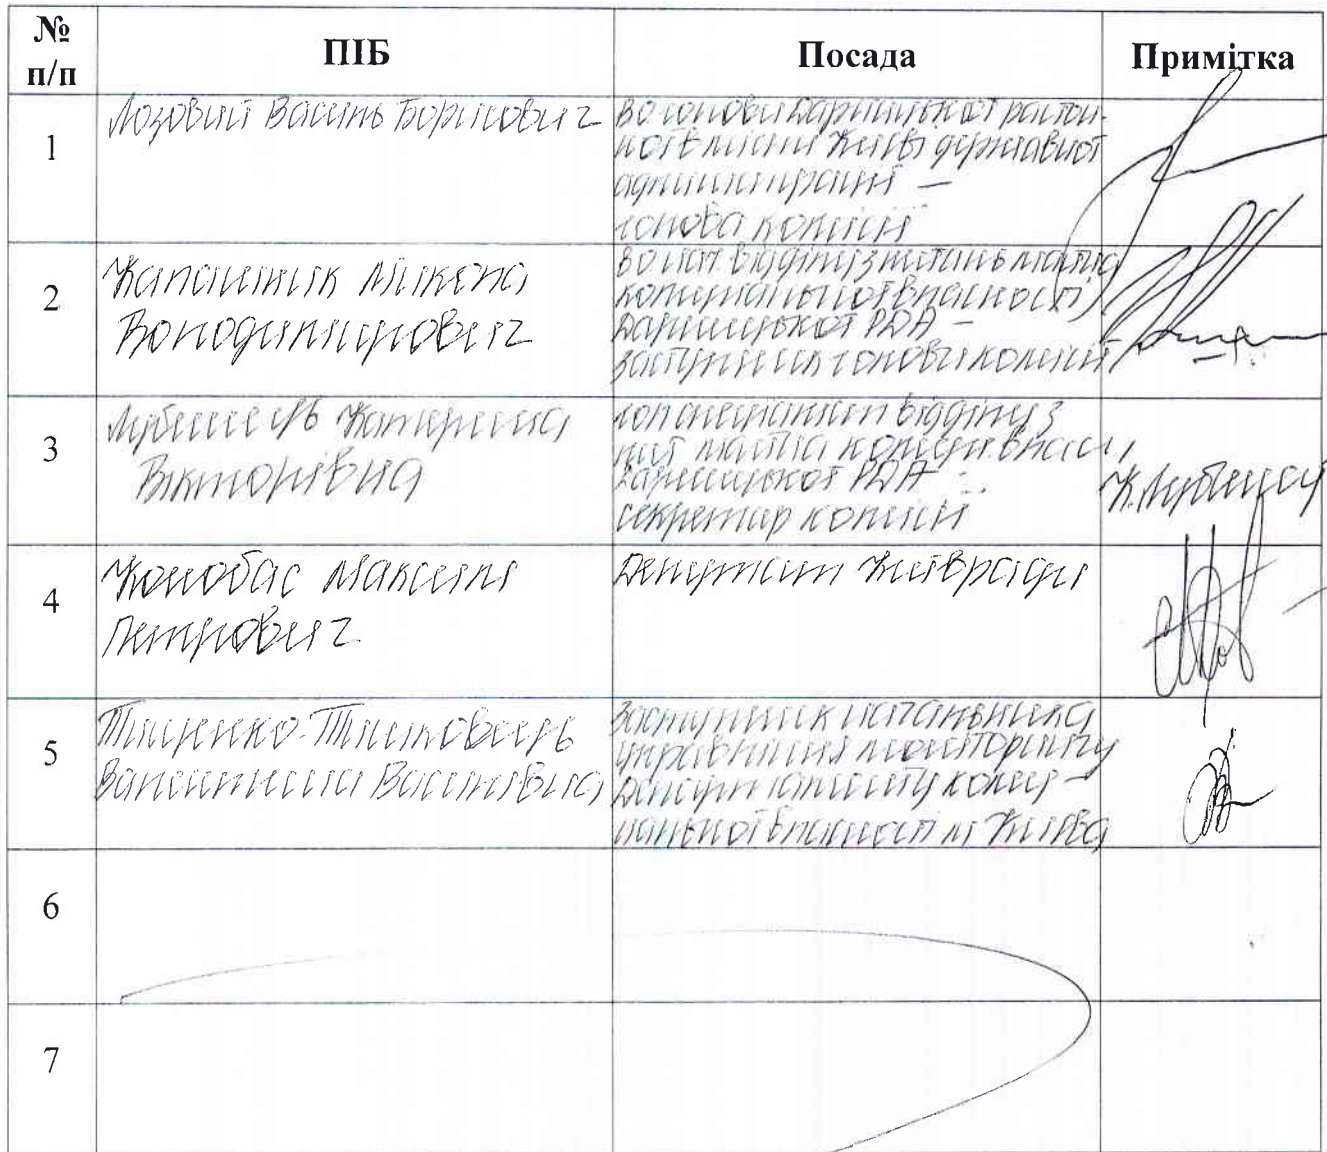 № п/п ПІБ Посада Примітка
1 Лозовий Василь Борисович ВО голови Дарницької район-
ної в місті Києві державної
адміністрації –
голова комісії
2 Микола
Володимирович
ВО нач. відділу з питань майна
комунальної власності
Дарницької РДА –
заступник голови комісії
3 Катерина
Вікторівна
гол спеціаліст відділу з
пит майна комун. власн.
Дарницької РДА –
секретар комісії
4 Конобас Максим
Петрович
Депутат Київради
5 Тищенко-Тишковець
Валентина Василівна
Заступник начальника
управління моніторингу
Департаменту кому–
нальної власності м Києва
6
7